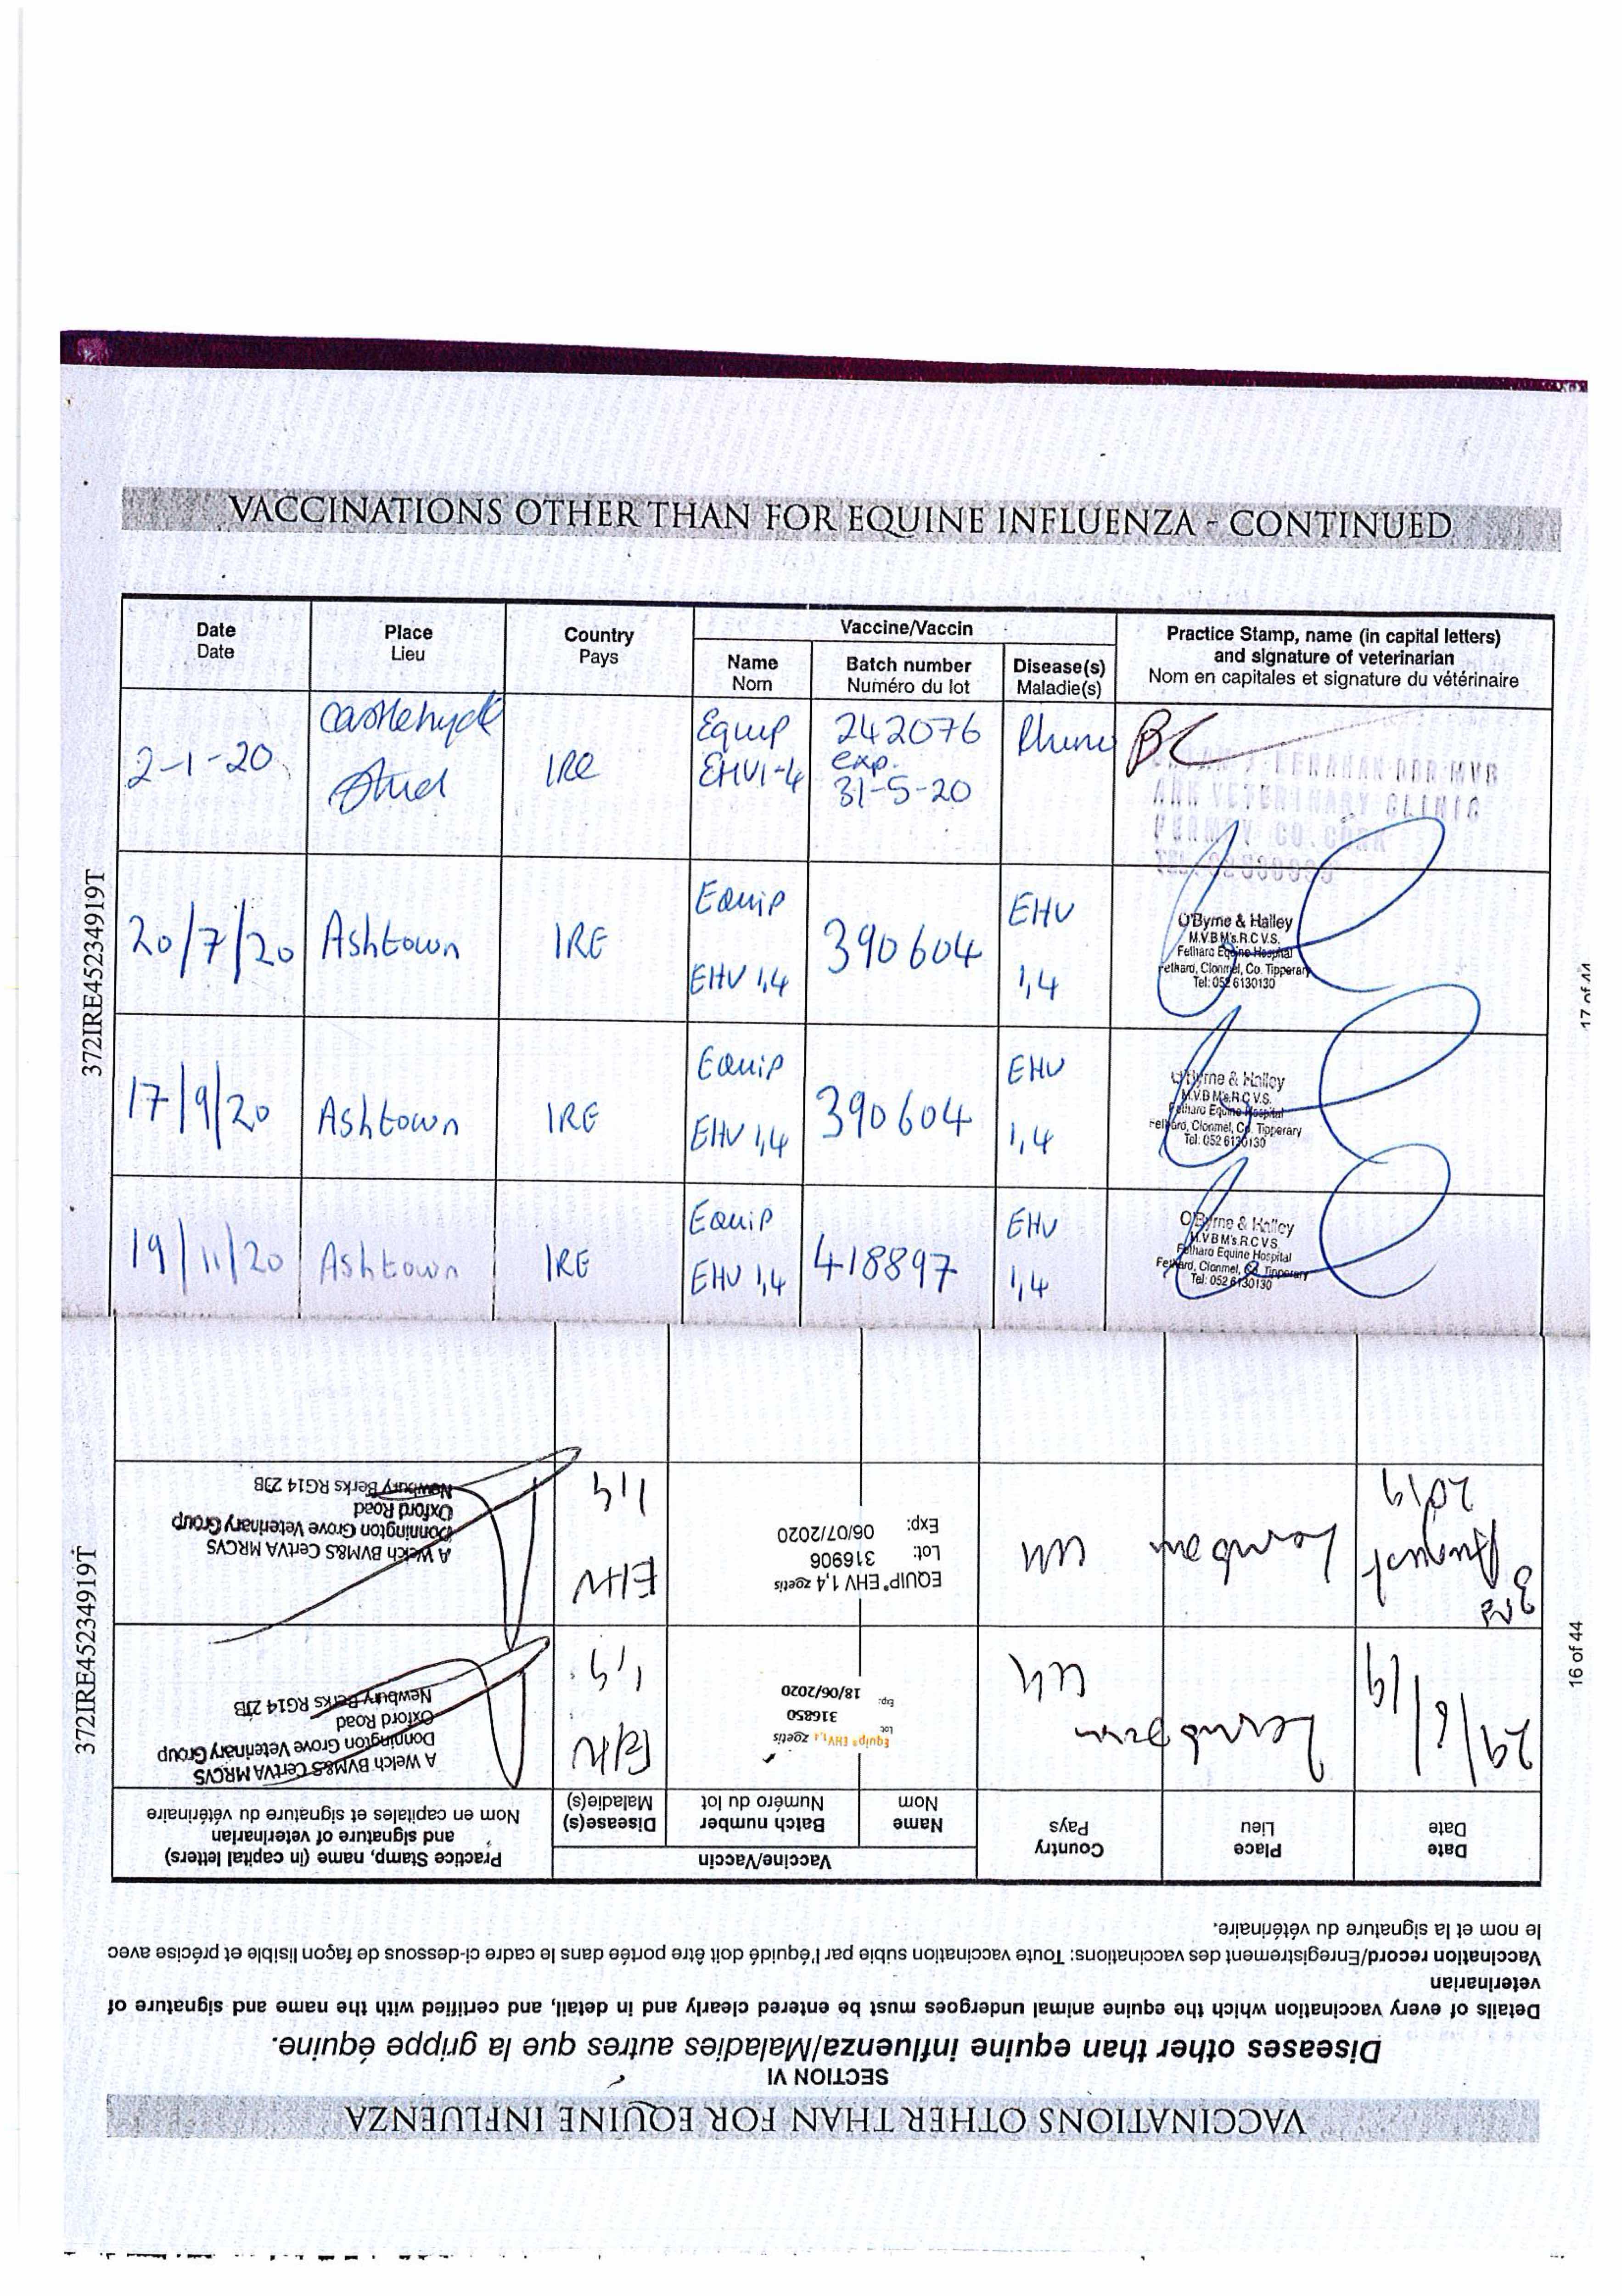 VACCINATIONS OTHER THAN FOR EQUINE INFLUENZA - CONTINUED
Date
Date
Place
Lieu
Country
Pays
Vaccine/Vaccin
Name
Nom
Batch number
Numéro du lot
Disease(s)
Maladie(s)
Practice Stamp, name (in capital letters)
and signature of veterinarian
Nom en capitales et signature du vétérinaire
2-1-20
Castlehyde
Stud
IRE
Equip
EHV1-4
242076
exp.
31-5-20
Rhino
BC
VETERINARY CLINIC
CO. CORK
20/7/20
Ashtown
IRE
Equip
EHV 1,4
390604
EHV
1,4
O'Byrne & Halley
M.V.B M's.R.C.V.S.
Fethard Equine Hospital
Fethard, Clonmel, Co. Tipperary
Tel: 052 6130130
17/9/20
Ashtown
IRE
Equip
EHV 1,4
390604
EHV
1,4
O'Byrne & Halley
M.V.B M's.R.C.V.S.
Fethard Equine Hospital
Fethard, Clonmel, Co. Tipperary
Tel: 052 6130130
19/11/20
Ashtown
IRE
Equip
EHV 1,4
418897
EHV
1,4
O'Byrne & Halley
M.V.B M's.R.C.V.S
Fethard Equine Hospital
Fethard, Clonmel, Co. Tipperary
Tel: 052 6130130
372IRE45234919T
17 of 44
VACCINATIONS OTHER THAN FOR EQUINE INFLUENZA
SECTION VI
Diseases other than equine influenza/Maladies autres que la grippe équine.
Details of every vaccination which the equine animal undergoes must be entered clearly and in detail, and certified with the name and signature of
veterinarian
Vaccination record/Enregistrement des vaccinations: Toute vaccination subie par l'équidé doit être portée dans le cadre ci-dessous de façon lisible et précise avec
le nom et la signature du vétérinaire.
Date
Date
Place
Lieu
Country
Pays
Vaccine/Vaccin
Name
Nom
Batch number
Numéro du lot
Disease(s)
Maladie(s)
Practice Stamp, name (in capital letters)
and signature of veterinarian
Nom en capitales et signature du vétérinaire
Lambourn
UK
Equip® EHV1,4 zoetis
Lot: 316850
Exp: 18/06/2020
EHV
1,4
A Welch BVM&S CertVA MRCVS
Donnington Grove Veterinary Group
Oxford Road
Newbury Berks RG14 2JB
3rd
August
2019
Lambourn
UK
EQUIP® EHV 1,4 zoetis
Lot: 316906
Exp: 06/07/2020
EHV
1,4
A Welch BVM&S CertVA MRCVS
Donnington Grove Veterinary Group
Oxford Road
Newbury Berks RG14 2JB
372IRE45234919T
16 of 44